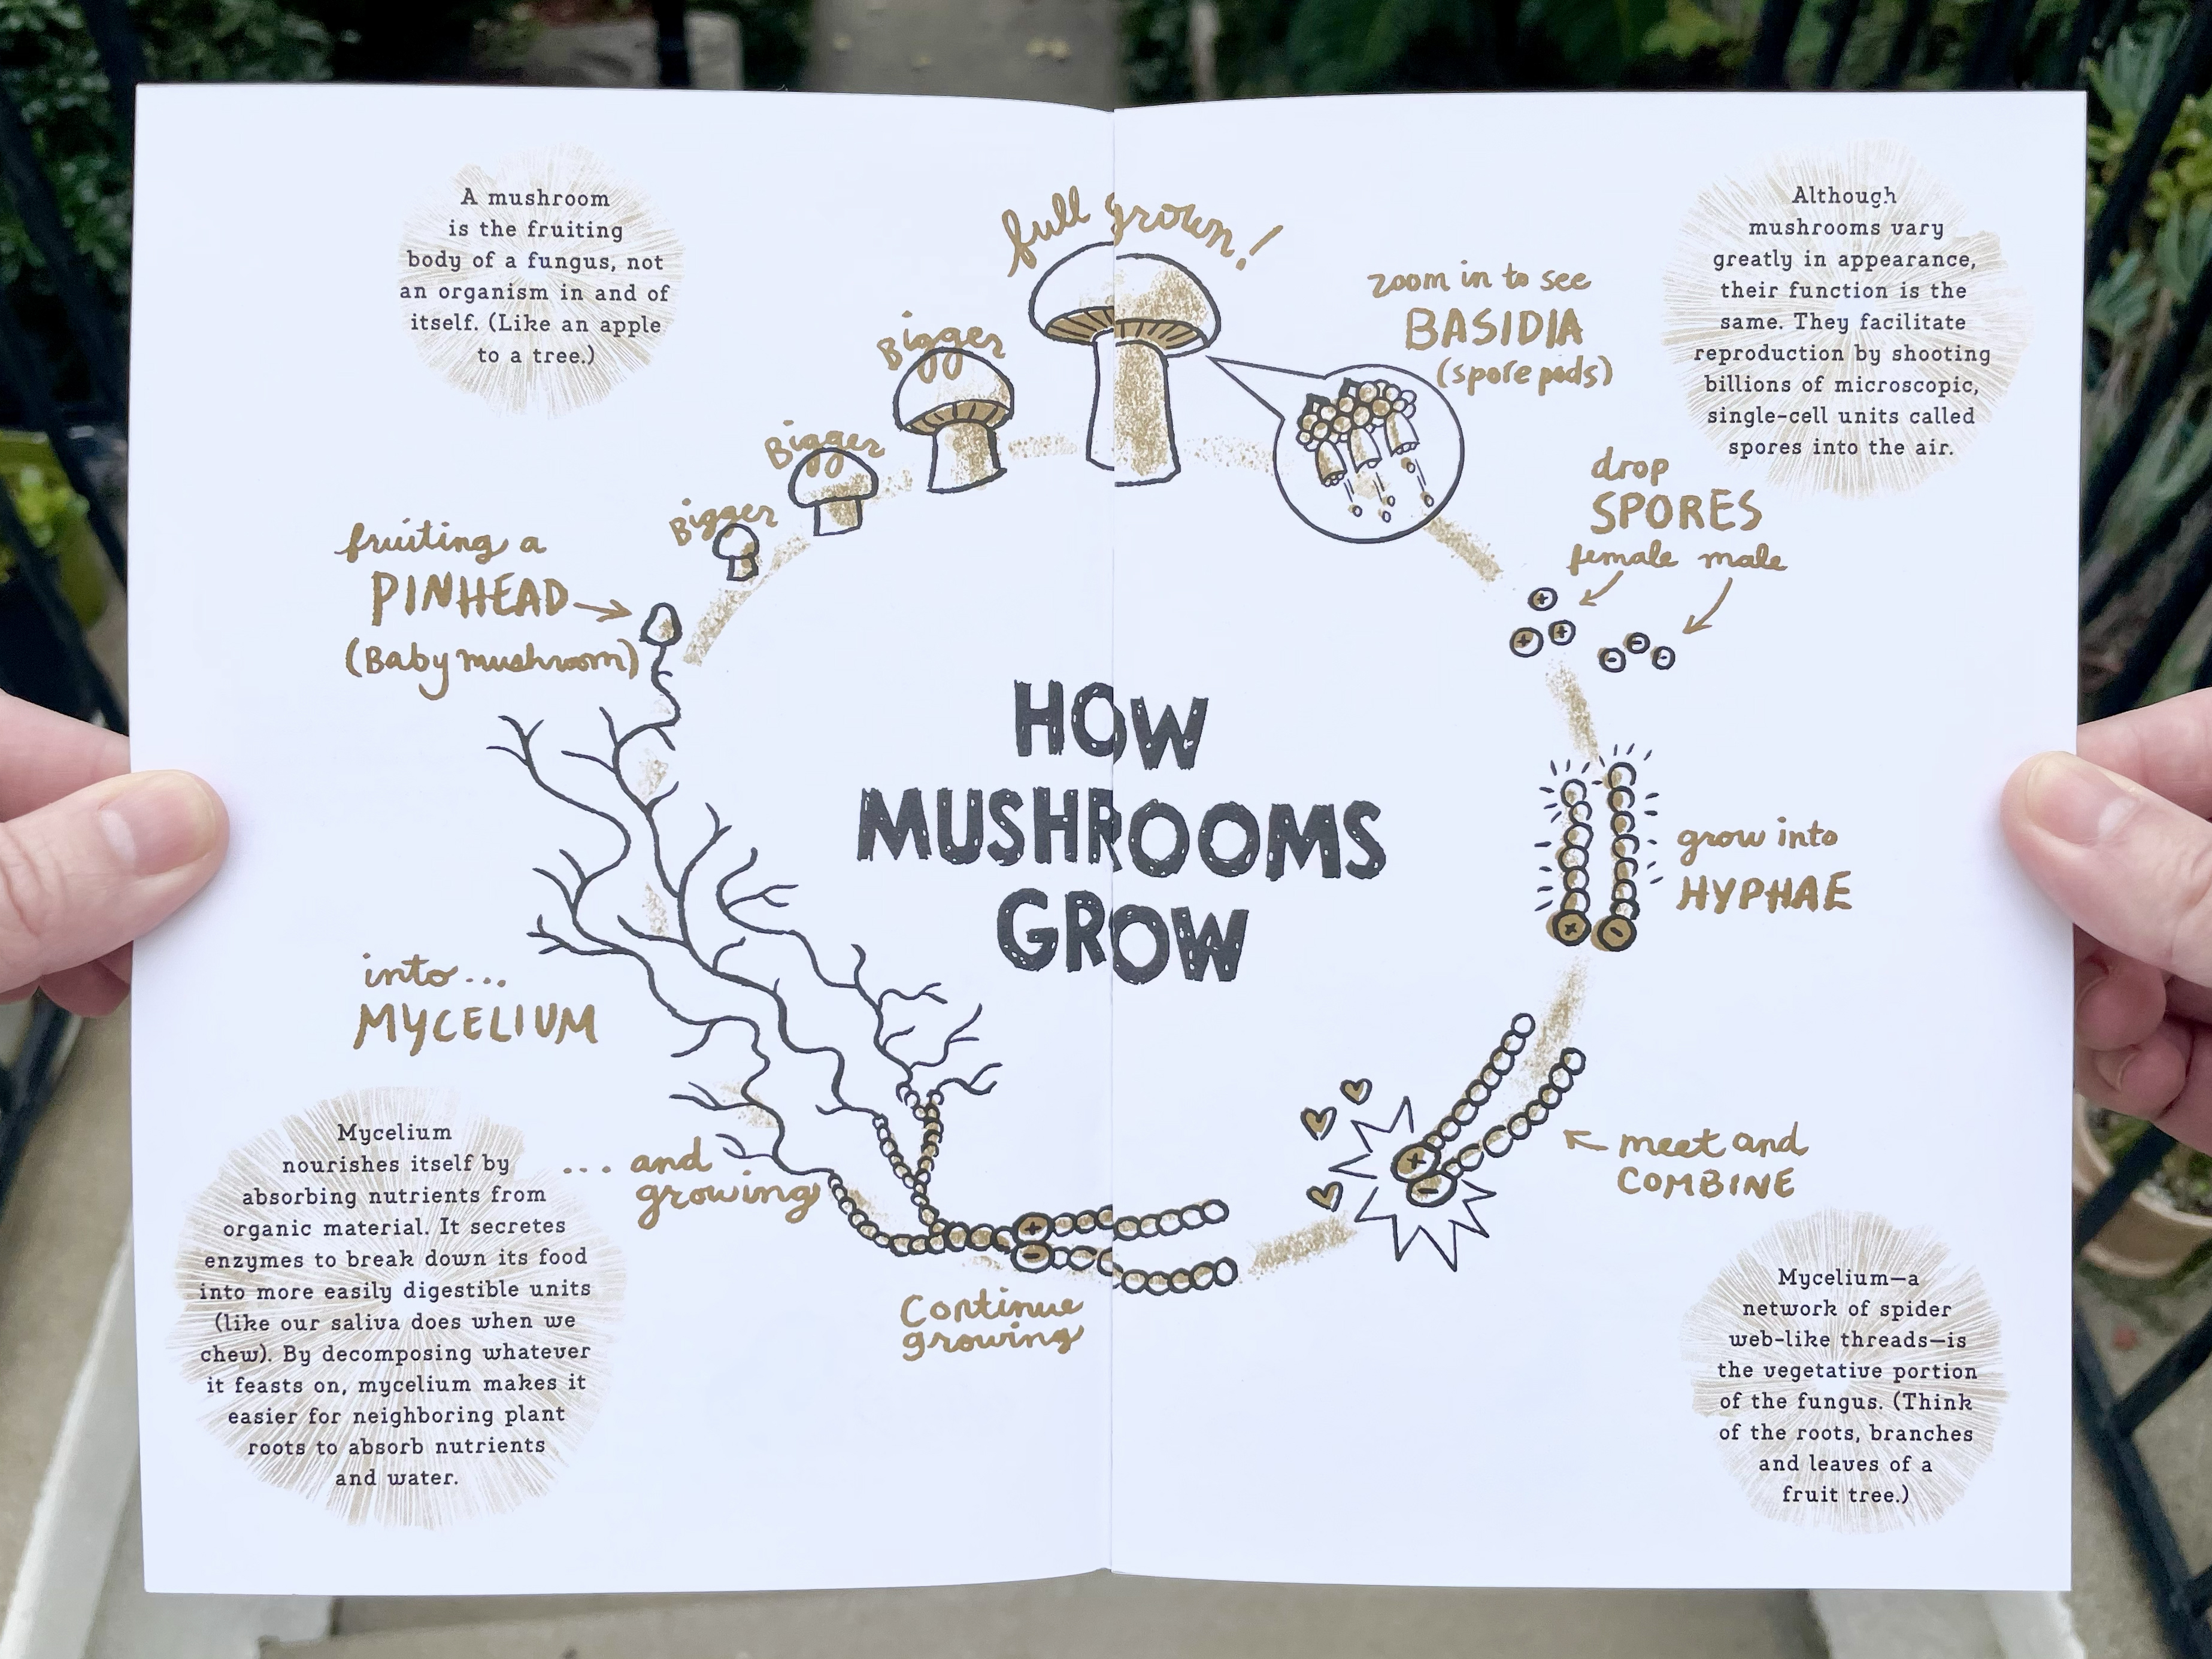 A mushroom
is the fruiting
body of a fungus, not
an organism in and of
itself. (Like an apple
to a tree.)
full grown!
Bigger
Bigger
Bigger
fruiting a
PINHEAD
(Baby mushroom)
into...
MYCELIUM
Mycelium
nourishes itself by
absorbing nutrients from
organic material. It secretes
enzymes to break down its food
into more easily digestible units
(like our saliva does when we
chew). By decomposing whatever
it feasts on, mycelium makes it
easier for neighboring plant
roots to absorb nutrients
and water.
... and
growing
Continue
growing
HOW
MUSHROOMS
GROW
zoom in to see
BASIDIA
(spore pods)
Although
mushrooms vary
greatly in appearance,
their function is the
same. They facilitate
reproduction by shooting
billions of microscopic,
single-cell units called
spores into the air.
drop
SPORES
female male
+
+ +
- - -
grow into
HYPHAE
+ -
meet and
COMBINE
+
-
+
-
Mycelium—a
network of spider
web-like threads—is
the vegetative portion
of the fungus. (Think
of the roots, branches
and leaves of a
fruit tree.)